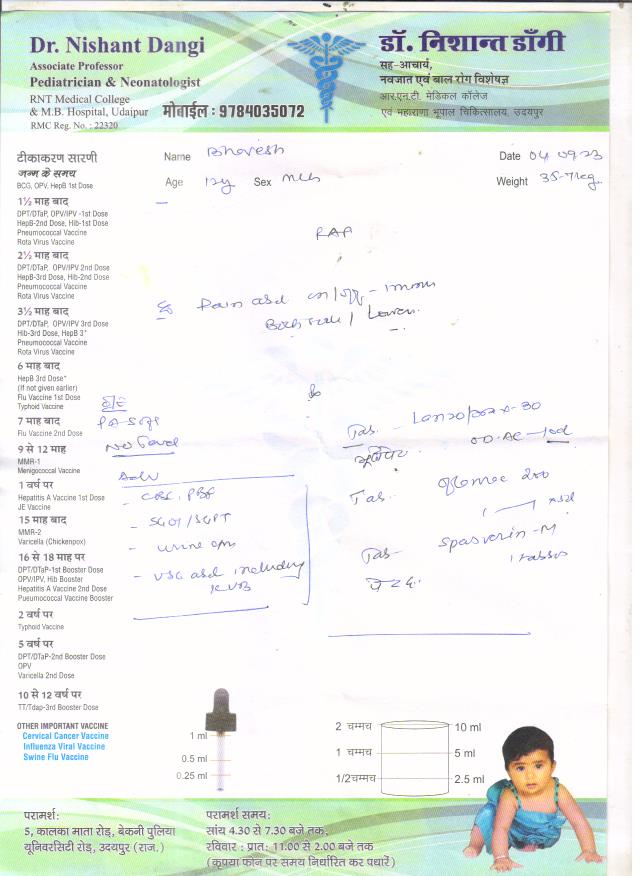 Dr. Nishant Dangi
Associate Professor
Pediatrician & Neonatologist
RNT Medical College
& M.B. Hospital, Udaipur
मोबाईल : 9784035072
RMC Reg. No. : 22320
डॉ. निशान्त डाँगी
सह-आचार्य,
नवजात एवं बाल रोग विशेषज्ञ
आर.एन.टी. मेडिकल कॉलेज
एवं महाराणा भूपाल चिकित्सालय, उदयपुर
Name Bhavesh
Date 04 09 23
Age 12y Sex Mch
Weight 35.7kg
टीकाकरण सारणी
जन्म के समय
BCG, OPV, HepB 1st Dose
1½ माह बाद
DPT/DTaP, OPV/IPV -1st Dose
HepB-2nd Dose, Hib-1st Dose
Pneumococcal Vaccine
Rota Virus Vaccine
2½ माह बाद
DPT/DTaP, OPV/IPV 2nd Dose
HepB-3rd Dose, Hib-2nd Dose
Pneumococcal Vaccine
Rota Virus Vaccine
3½ माह बाद
DPT/DTaP, OPV/IPV 3rd Dose
Hib-3rd Dose, HepB 3*
Pneumococcal Vaccine
Rota Virus Vaccine
6 माह बाद
HepB 3rd Dose*
(If not given earlier)
Flu Vaccine 1st Dose
Typhoid Vaccine
7 माह बाद
Flu Vaccine 2nd Dose
9 से 12 माह
MMR-1
Menigococcal Vaccine
1 वर्ष पर
Hepatitis A Vaccine 1st Dose
JE Vaccine
15 माह बाद
MMR-2
Varicella (Chickenpox)
16 से 18 माह पर
DPT/DTaP-1st Booster Dose
OPV/IPV, Hib Booster
Hepatitis A Vaccine 2nd Dose
Pueumococcal Vaccine Booster
2 वर्ष पर
Typhoid Vaccine
5 वर्ष पर
DPT/DTaP-2nd Booster Dose
OPV
Varicella 2nd Dose
10 से 12 वर्ष पर
TT/Tdap-3rd Booster Dose
OTHER IMPORTANT VACCINE
Cervical Cancer Vaccine
Influenza Viral Vaccine
Swine Flu Vaccine
RAP
Pain abd
O/E
P/A - Soft
Adv
- CBC, PBF
- SGOT/SGPT
- urine
- USG abd including
KUB
Tab.
OD. AC
Tab.
200
Tab - Spasverin - M
1 ml
0.5 ml
0.25 ml
2 चम्मच 10 ml
1 चम्मच 5 ml
1/2चम्मच 2.5 ml
परामर्श:
5, कालका माता रोड़, बेकनी पुलिया
यूनिवरसिटी रोड़, उदयपुर (राज.)
परामर्श समय:
सांय 4.30 से 7.30 बजे तक,
रविवार : प्रात: 11.00 से 2.00 बजे तक
(कृपया फोन पर समय निर्धारित कर पधारें)